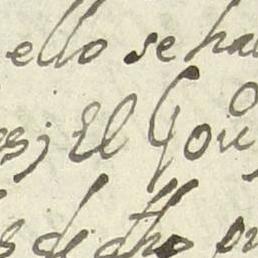 ello se ha
s; El Gou
s de dho